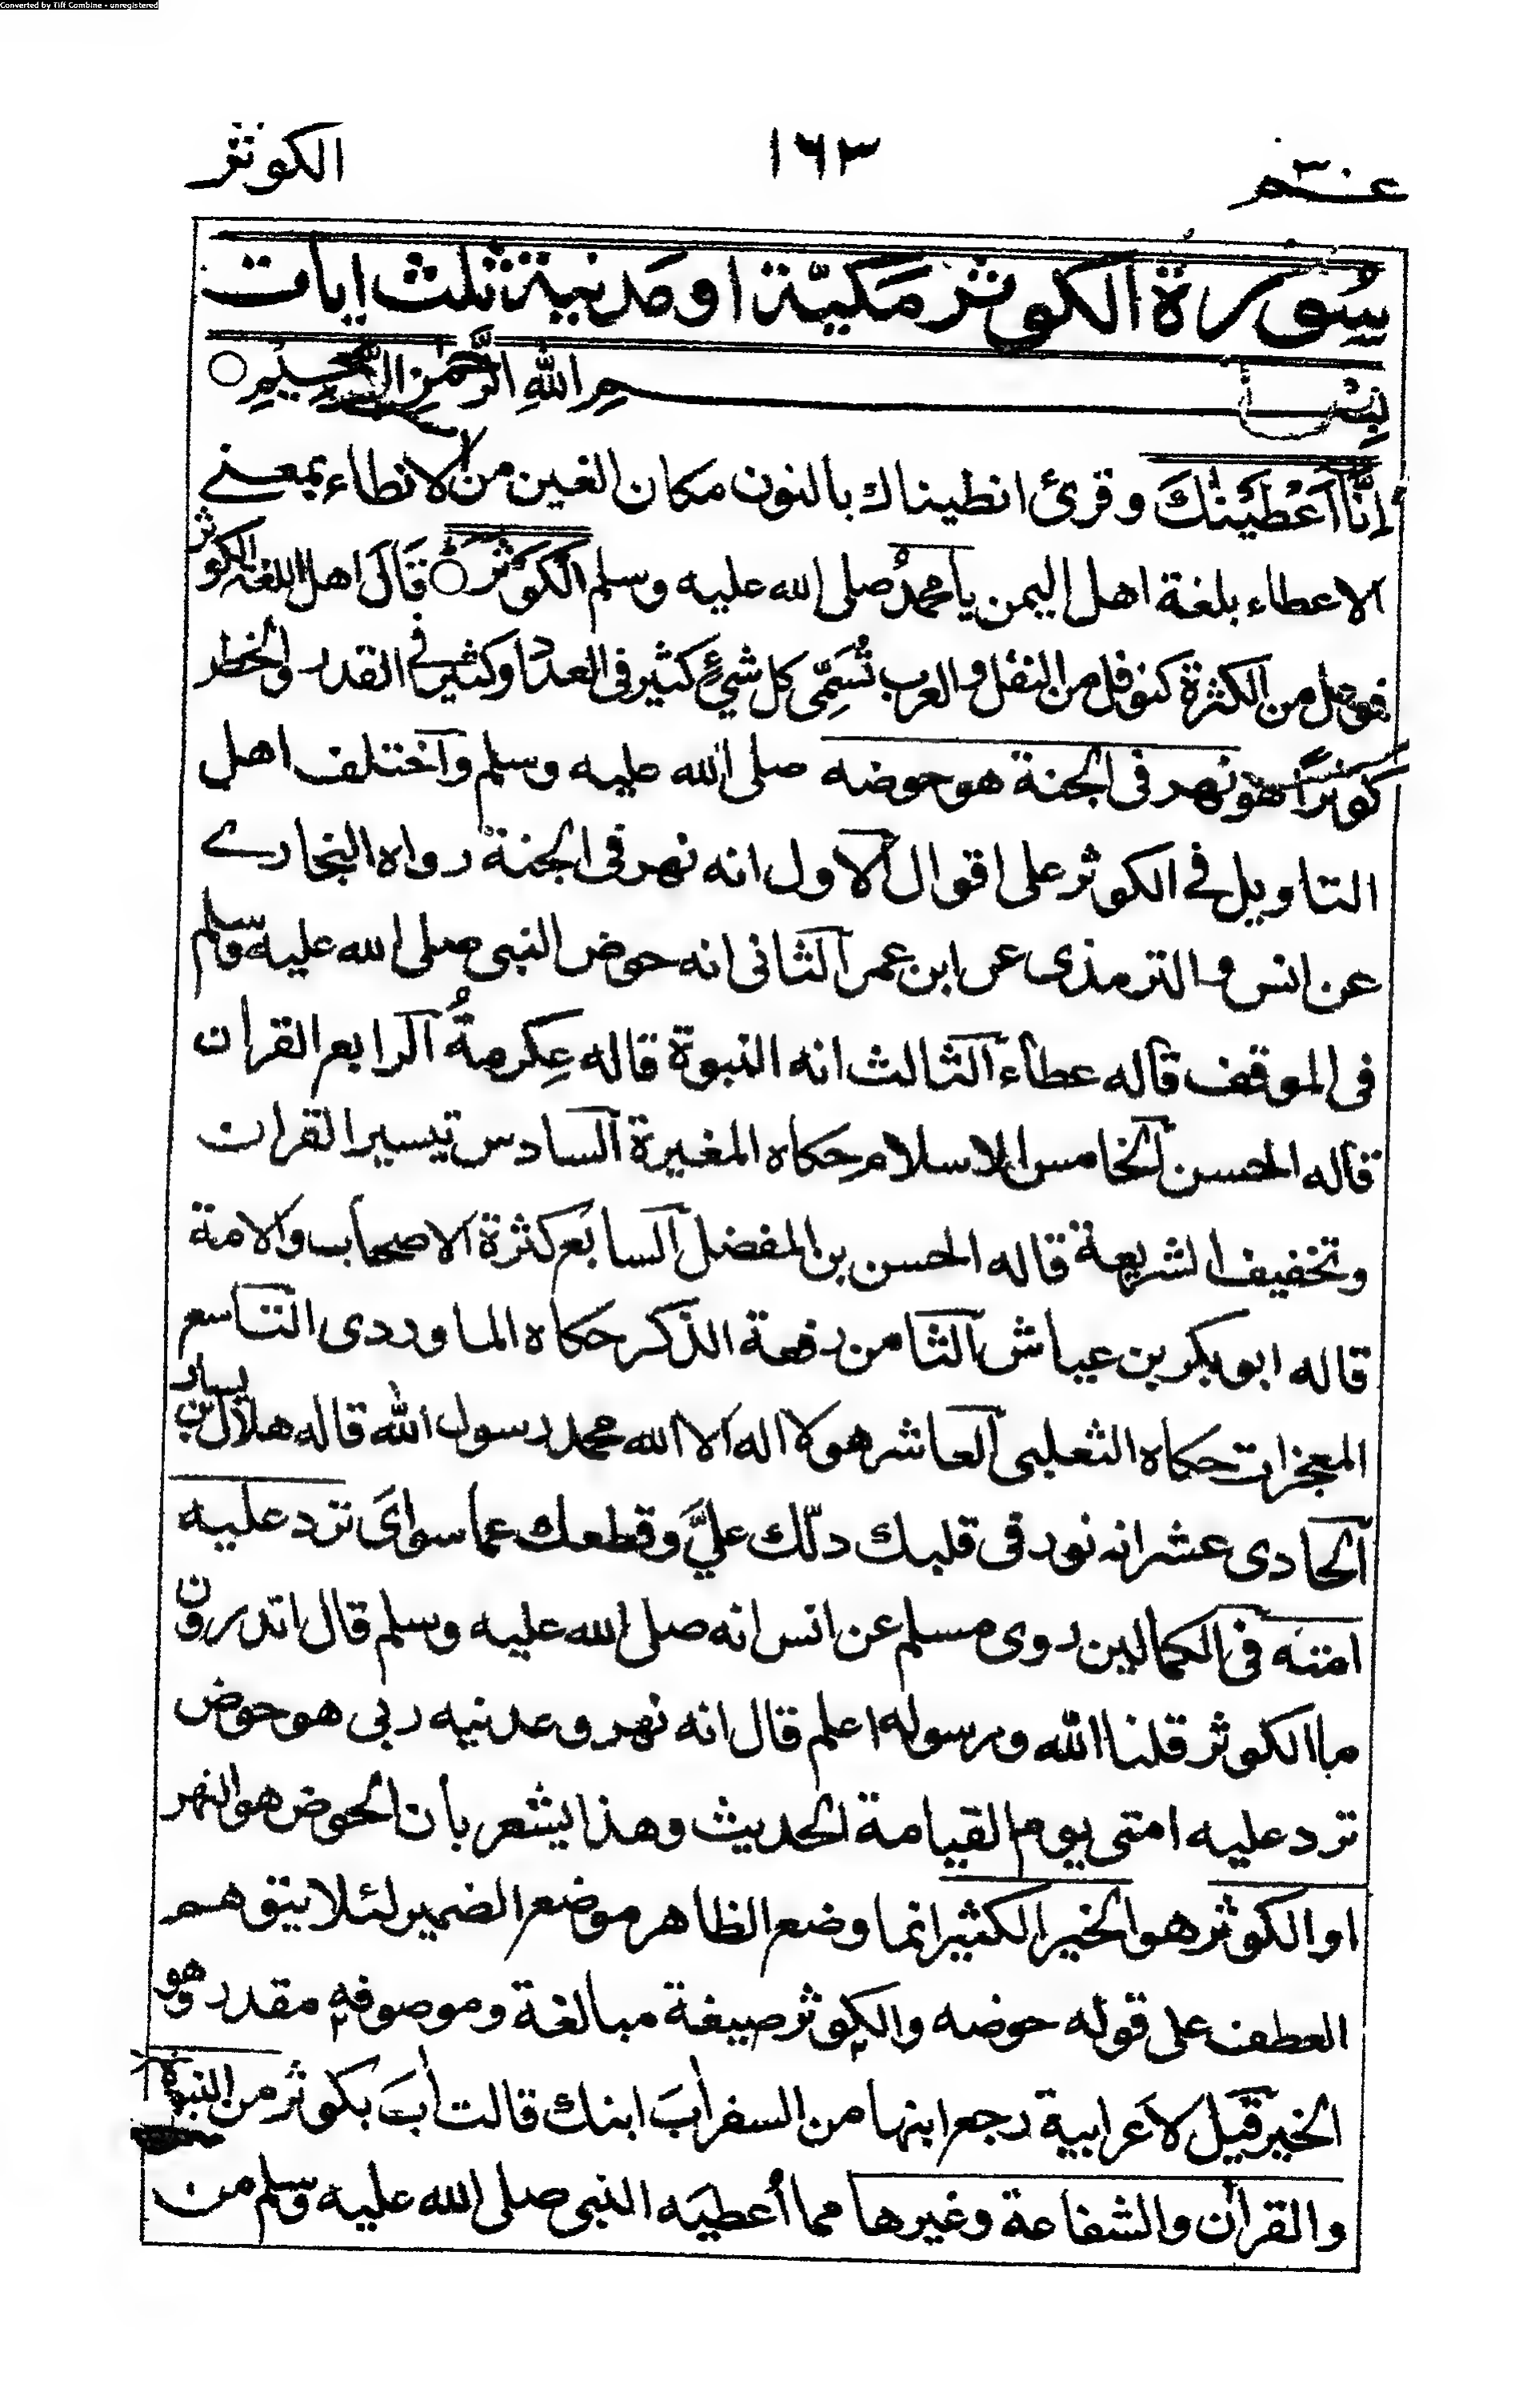 Converted by Tiff Combine - unregistered
عم ٣٠
١٦٣
الكوثر
سُورة الكوثر مكيّة او مدنية ثلث ايات
بِسْمِ اللهِ الرَّحْمٰنِ الرَّحِيْمِ ○
اِنَّا اَعْطَيْنٰكَ وقرئ انطيناك بالنون مكان العين من الانطاء بمعنے
الاعطاء بلغة اهل اليمن يا محمدُ صلى الله عليه وسلم الْكَوْثَرَ ○ قَالَ اهل اللغة الكوثر
فوعل من الكثرة كنوفل من النفل والعرب تُسَمِّى كل شيءٍ كثير فى العدد او كثير فى القدر والخطر
كوثرًا هو نهر فى الجنة هو حوضه صلى الله عليه وسلم واختلف اهل
التاويل فے الكوثر على اقوال الاول انه نهر فى الجنة رواه البخارے
عن انس والترمذى عن ابن عمر الثانى انه حوض النبى صلى الله عليه وسلم
فى الموقف قاله عطاء الثالث انه النبوة قاله عِكرمةُ الرابع القران
قاله الحسن الخامس الاسلام حكاه المغيرة السادس تيسير القران
وتخفيف الشريعة قاله الحسن بن المفضل السابع كثرة الاصحاب والامة
قاله ابو بكر بن عياش الثامن رفعة الذكر حكاه الماوردى التاسع
المعجزات حكاه الثعلبى العاشر هو لا اله الا الله محمد رسول الله قاله هلال بن يسار
الحادى عشر انه نور فى قلبك دلّك عليَّ وقطعك عما سواىَ ترد عليه
امته فى الكمالين روى مسلم عن انس انه صلى الله عليه وسلم قال اتدرون
ما الكوثر قلنا الله ورسوله اعلم قال انه نهر وعدنيه ربى هو حوض
ترد عليه امتى يوم القيامة الحديث وهذا يشعر بأن الحوض هو النهر
او الكوثر هو الخير الكثير انما وضع الظاهر موضع الضمير لئلا يتوهم
العطف على قوله حوضه والكوثر صيغة مبالغة وموصوفه مقدر وهو
الخير قيل لاَعرابية رجع ابنها من السفر اٰبَ ابنك قالت اٰبَ بكوثر من النبوة
والقراٰن والشفاعة وغيرها مما اُعطيَه النبى صلى الله عليه وسلم من